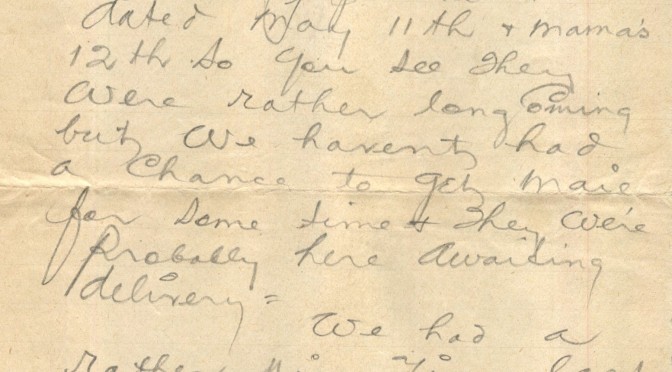 dated May 11th + mama's
12th so you see they
were rather long coming
but we havent had
a chance to get mail
for some time + they were
probably here awaiting
delivery =
We had a
rather